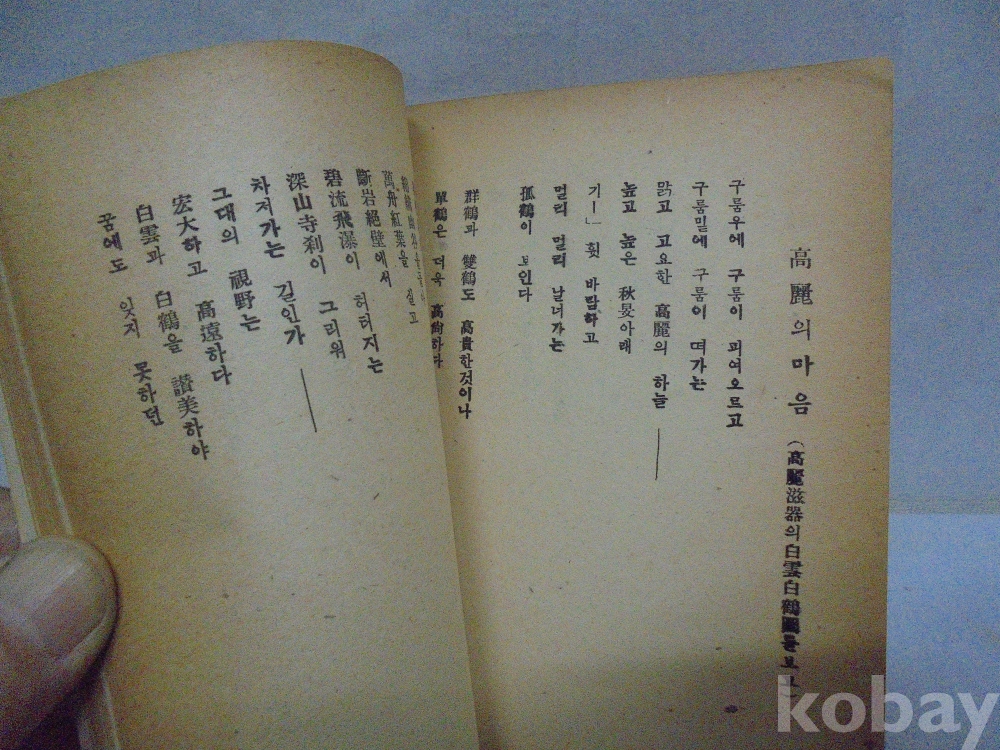 高麗의마음 (高麗滋器의白雲白鶴圖를보고)
구룸우에 구룸이 피여오르고
구룸밑에 구룸이 떠가는
맑고 고요한 高麗의 하늘——
높고 높은 秋旻아래
기ー」휫 바람하고
멀리 멀리 날너가는
孤鶴이 보인다
群鶴과 雙鶴도 高貴한것이나
單鶴은 더욱 高尙하다
萬舟紅葉을 실고
斷岩絕壁에서
碧流飛瀑이 허터지는
深山寺刹이 그리워
차저가는 길인가——
그대의 視野는
宏大하고 高遠하다
白雲과 白鶴을 讚美하야
꿈에도 잊지 못하던
kobay